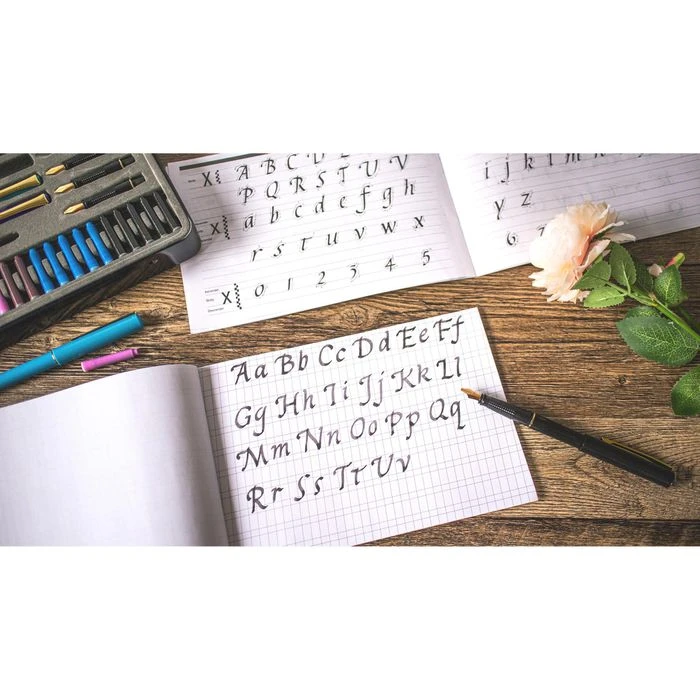 A B C D
P Q R S T U V
a b c d e f g h
r s t u v w x
0 1 2 3 4 5
i j k l m
y z
6
Aa Bb Cc Dd Ee Ff
Gg Hh Ii Jj Kk Ll
Mm Nn Oo Pp Qq
Rr Ss Tt Uv